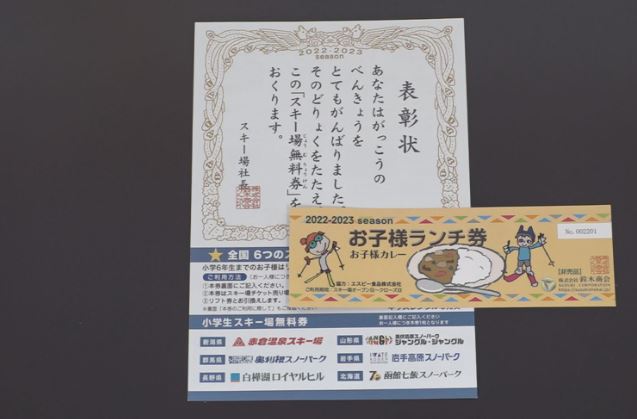 2022-2023
season
表彰状
あなたはがっこうの
べんきょうを
とてもがんばりました。
そのどりょくをたたえ
この「スキー場無料券」を
おくります。
スキー場社長
全国 6つのス
小学6年生までのお子様は
ご利用方法
小学生スキー場無料券
新潟県 赤倉温泉スキー場
山形県 ジャングル・ジャングル
群馬県 奥利根スノーパーク
岩手県 岩手高原スノーパーク
長野県 白樺湖ロイヤルヒル
北海道 函館七飯スノーパーク
2022-2023 season
No. 002201
お子様ランチ券
お子様カレー
協力：エスビー食品株式会社
【非売品】
株式会社 鈴木商会